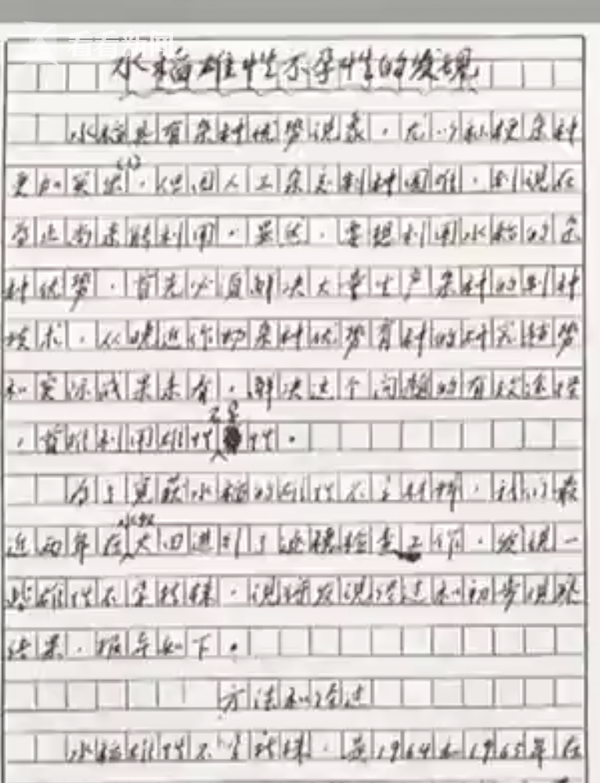 看看新闻
水稻雄性不孕性的发现
水稻具有杂种优势现象，尤以籼粳杂种
更加突出(1)，但因人工杂交制种困难，到现在
为止尚未能利用。显然，要想利用水稻的杂
种优势，首先必须解决大量生产杂种的制种
技术，从晚近作物杂种优势育种的研究趋势
和实际成果来看，解决这个问题的有效途径
，首推利用雄性不孕性。
为了寻获水稻的雄性不孕材料，我们最
近两年在水稻大田进行了逐穗检查工作，发现一
些雄性不孕植株，现将发现经过和初步
结果，报导如下。
方法和经过
水稻雄性不孕植株，是1964和1965年在